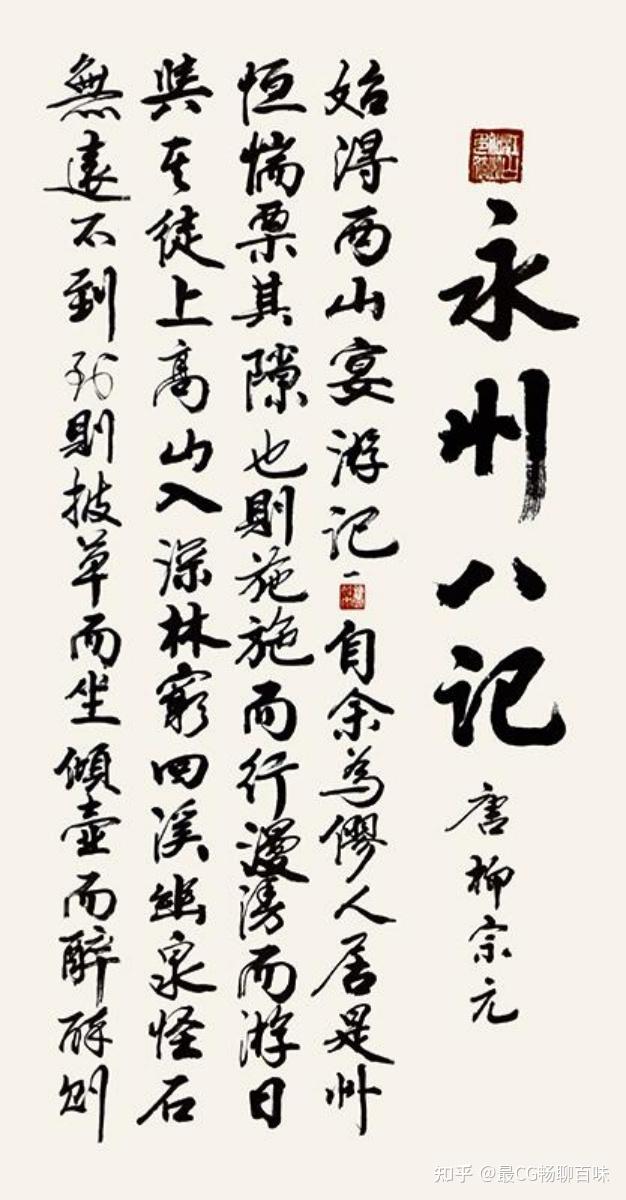 永州八记
唐柳宗元
始得西山宴游记一
自余為僇人居是州
恒惴栗其隙也則施施而行漫漫而游日
與其徒上高山入深林窮回溪幽泉怪石
無遠不到到則披草而坐傾壺而醉醉則
知乎 @最CG畅聊百味